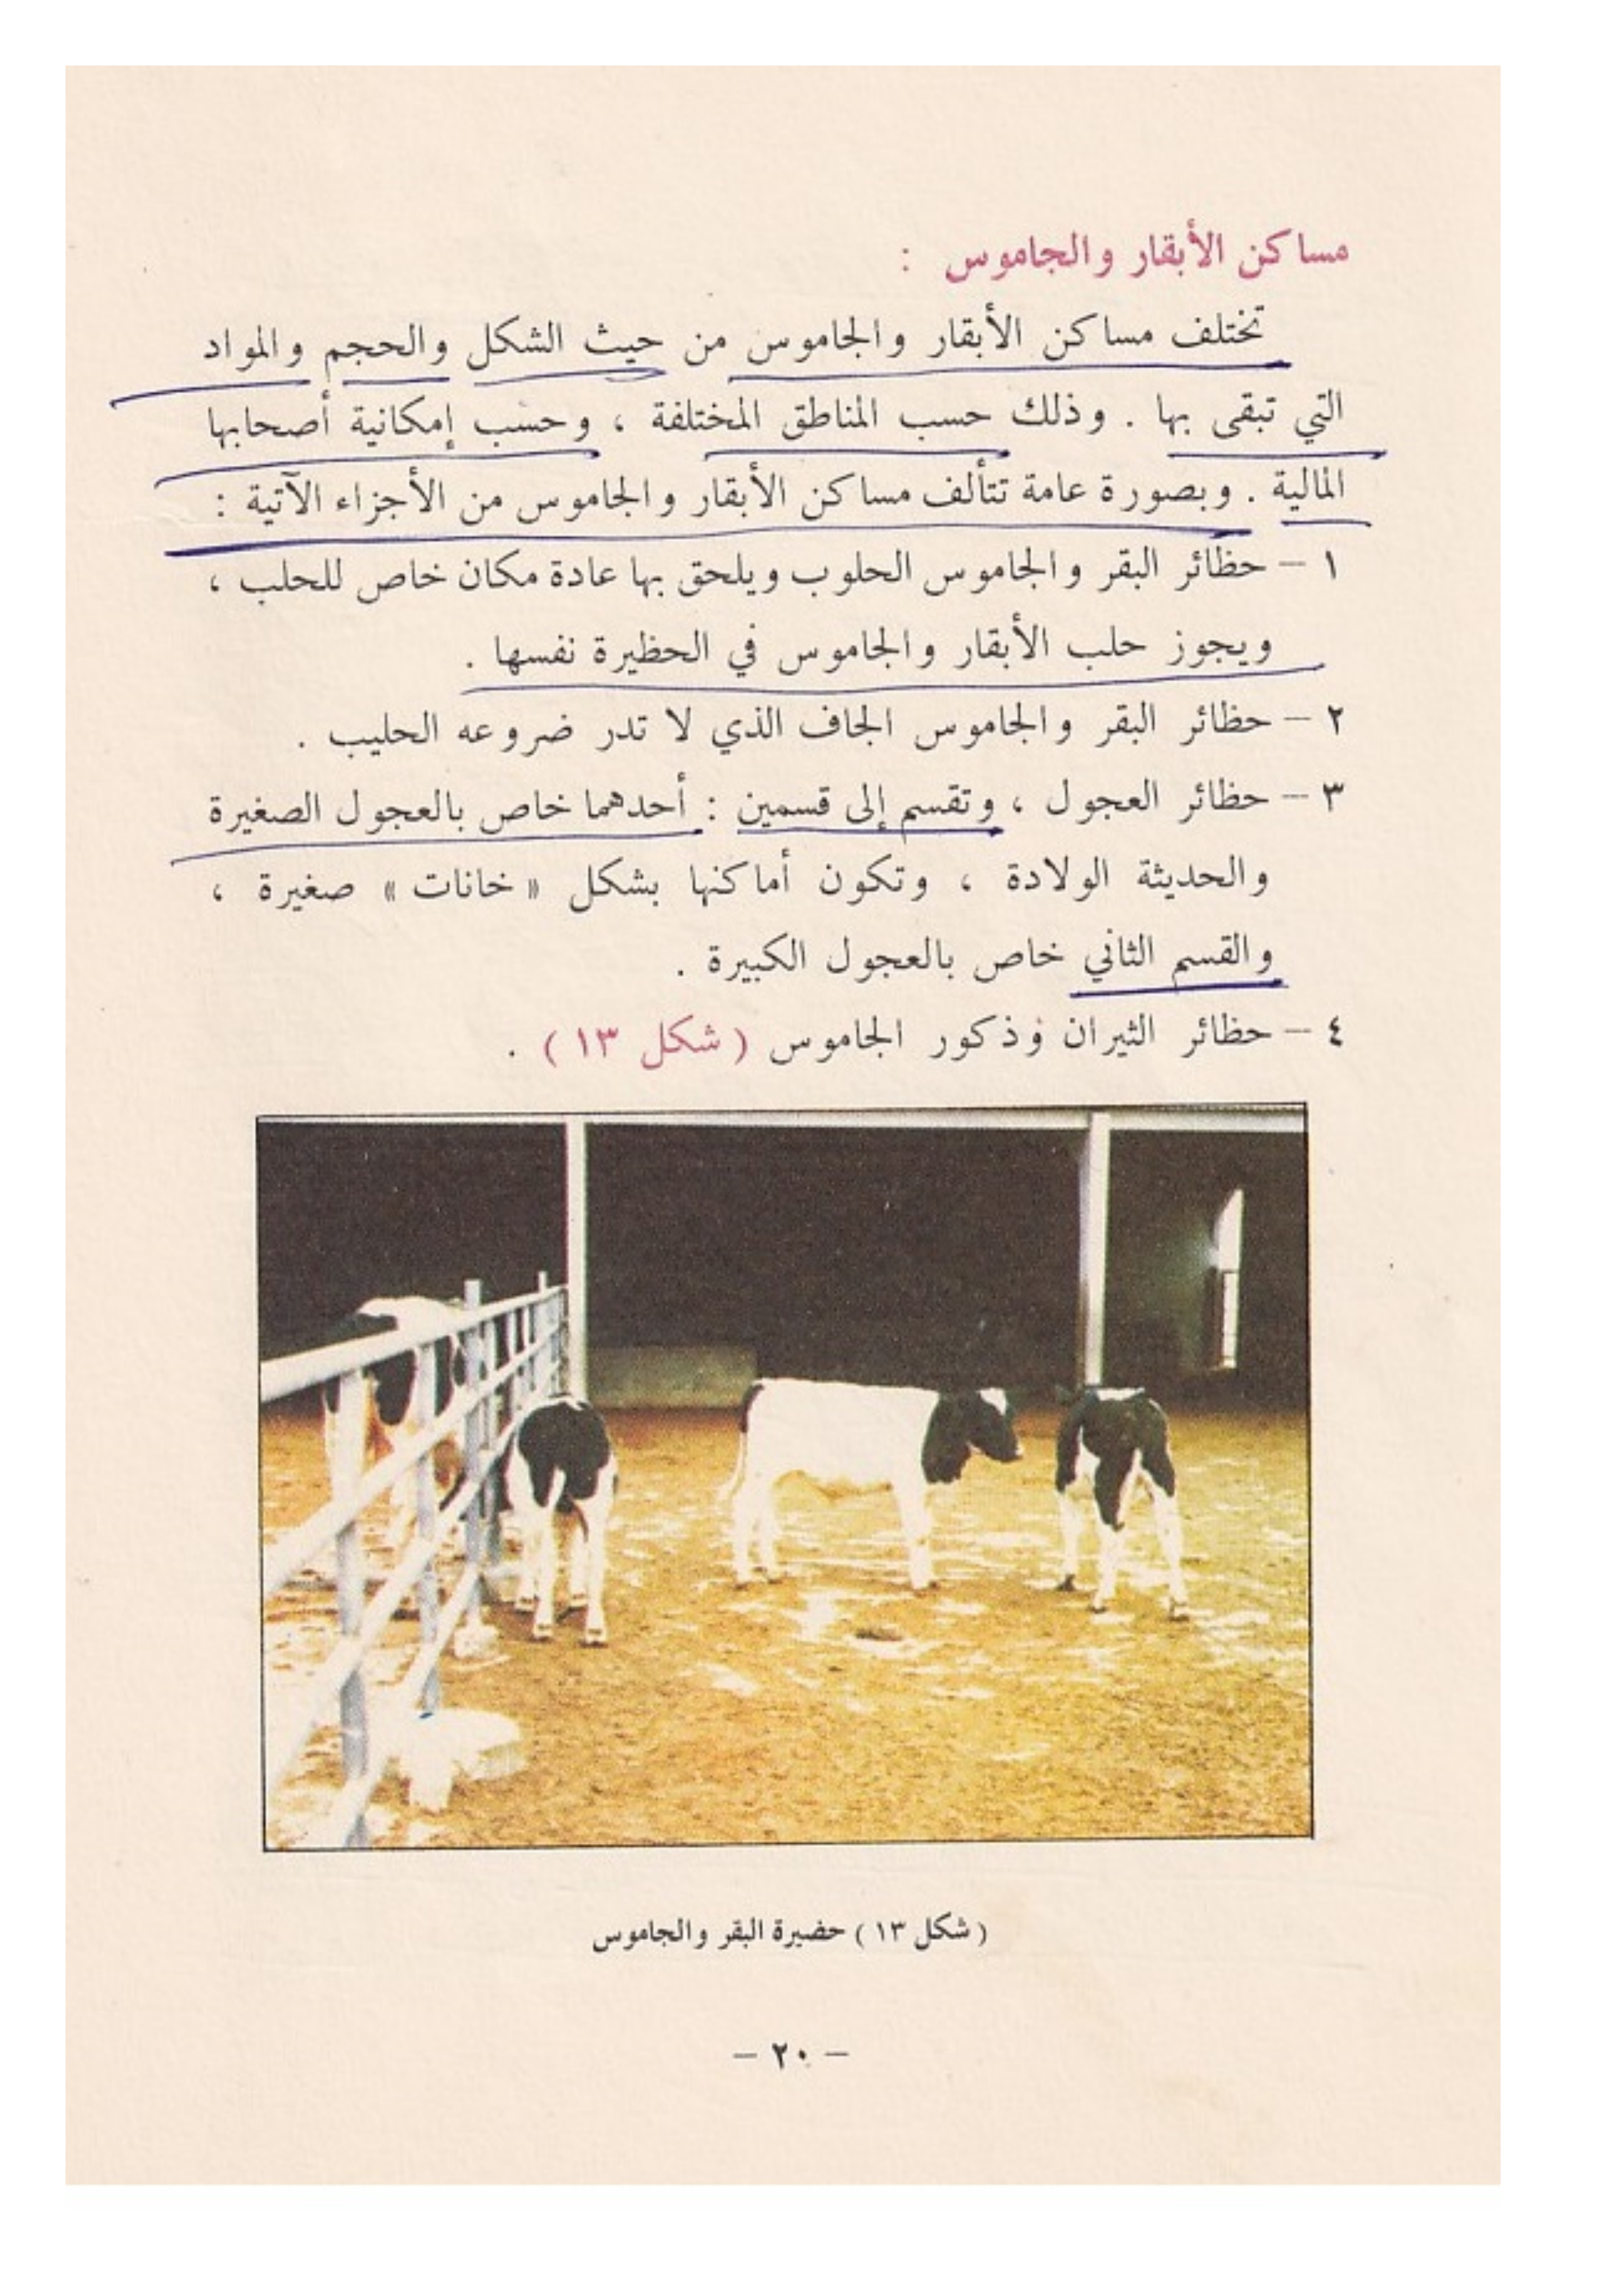 مساكن الأبقار والجاموس :
تختلف مساكن الأبقار والجاموس من حيث الشكل والحجم والمواد
التي تبقى بها . وذلك حسب المناطق المختلفة ، وحسب إمكانية أصحابها
المالية . وبصورة عامة تتألف مساكن الأبقار والجاموس من الأجزاء الآتية :
١ – حظائر البقر والجاموس الحلوب ويلحق بها عادة مكان خاص للحلب ،
ويجوز حلب الأبقار والجاموس في الحظيرة نفسها .
٢ – حظائر البقر والجاموس الجاف الذي لا تدر ضروعه الحليب .
٣ – حظائر العجول ، وتقسم إلى قسمين : أحدهما خاص بالعجول الصغيرة
والحديثة الولادة ، وتكون أماكنها بشكل « خانات » صغيرة ،
والقسم الثاني خاص بالعجول الكبيرة .
٤ – حظائر الثيران وذكور الجاموس ( شكل ١٣ ) .
( شكل ١٣ ) حضيرة البقر والجاموس
– ٢٠ –